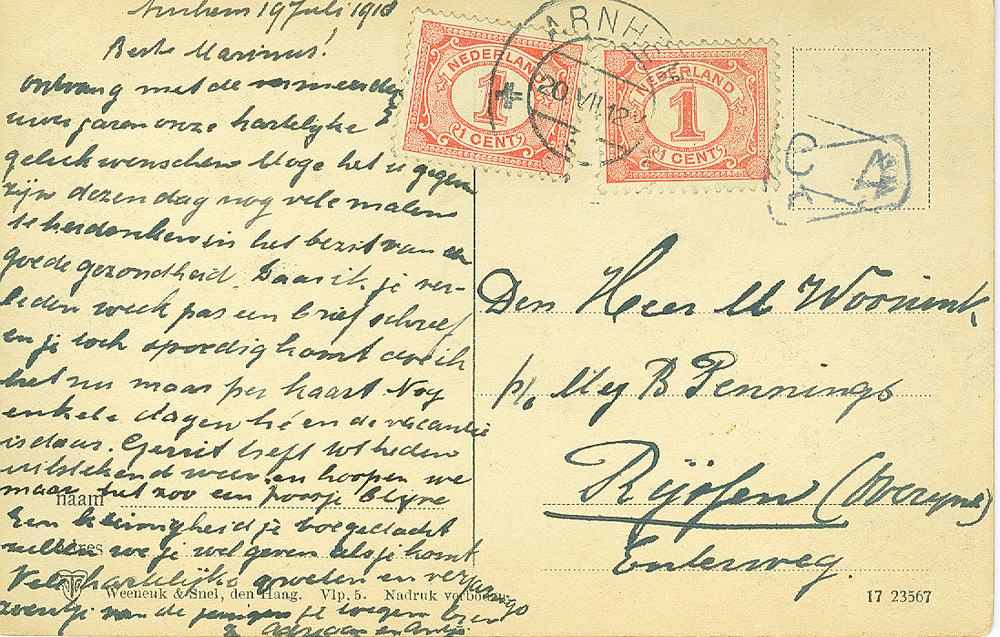 Arnhem 19 Juli 1918
Beste Marinus!
Ontvang met de vermeerdering
uwer jaren onze hartelijke
gelukwenschen Moge het u gegeven
zijn dezen dag nog vele malen
te herdenken in het bezit van een
goede gezondheid. Daar ik je ver-
leden week pas een brief schreef
en je toch spoedig komt doe ik
het nu maar per kaart Nog
enkele dagen hé en de vacantie
is daar. Gerrit treft tot heden
uitstekend weer en hoopen we
maar het zoo een poosje blijve
Een kleinigheid je toegedacht
zullen we je wel geven als je komt
Vele hartelijke groeten en
van de je
Adriaan en
NEDERLAND
1
1 CENT
NEDERLAND
1
1 CENT
ARNHEM
20 VII.18
4
Den Heer M Woonink
p/o Mej B Pennings
Rijssen (Overijsel)
Enterweg.
naam
adres
Weenenk & Snel, den Haag. Vlp. 5. Nadruk verboden.
17 23567